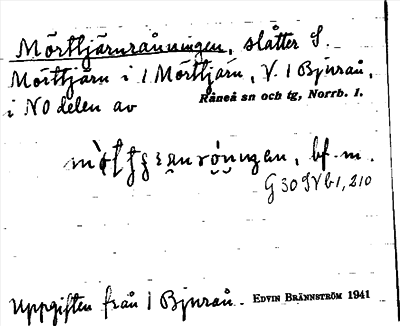 Mörttjärnrånningen, slåtter S.
Mörttjärn i 1 Mörttjärn, V. 1 Bjurån,
i NO delen av Råneå sn och tg, Norrb. l.
bf. m.
G 30 IV b 1, 210
Uppgiften från 1 Bjurån. EDVIN BRÄNNSTRÖM 1941